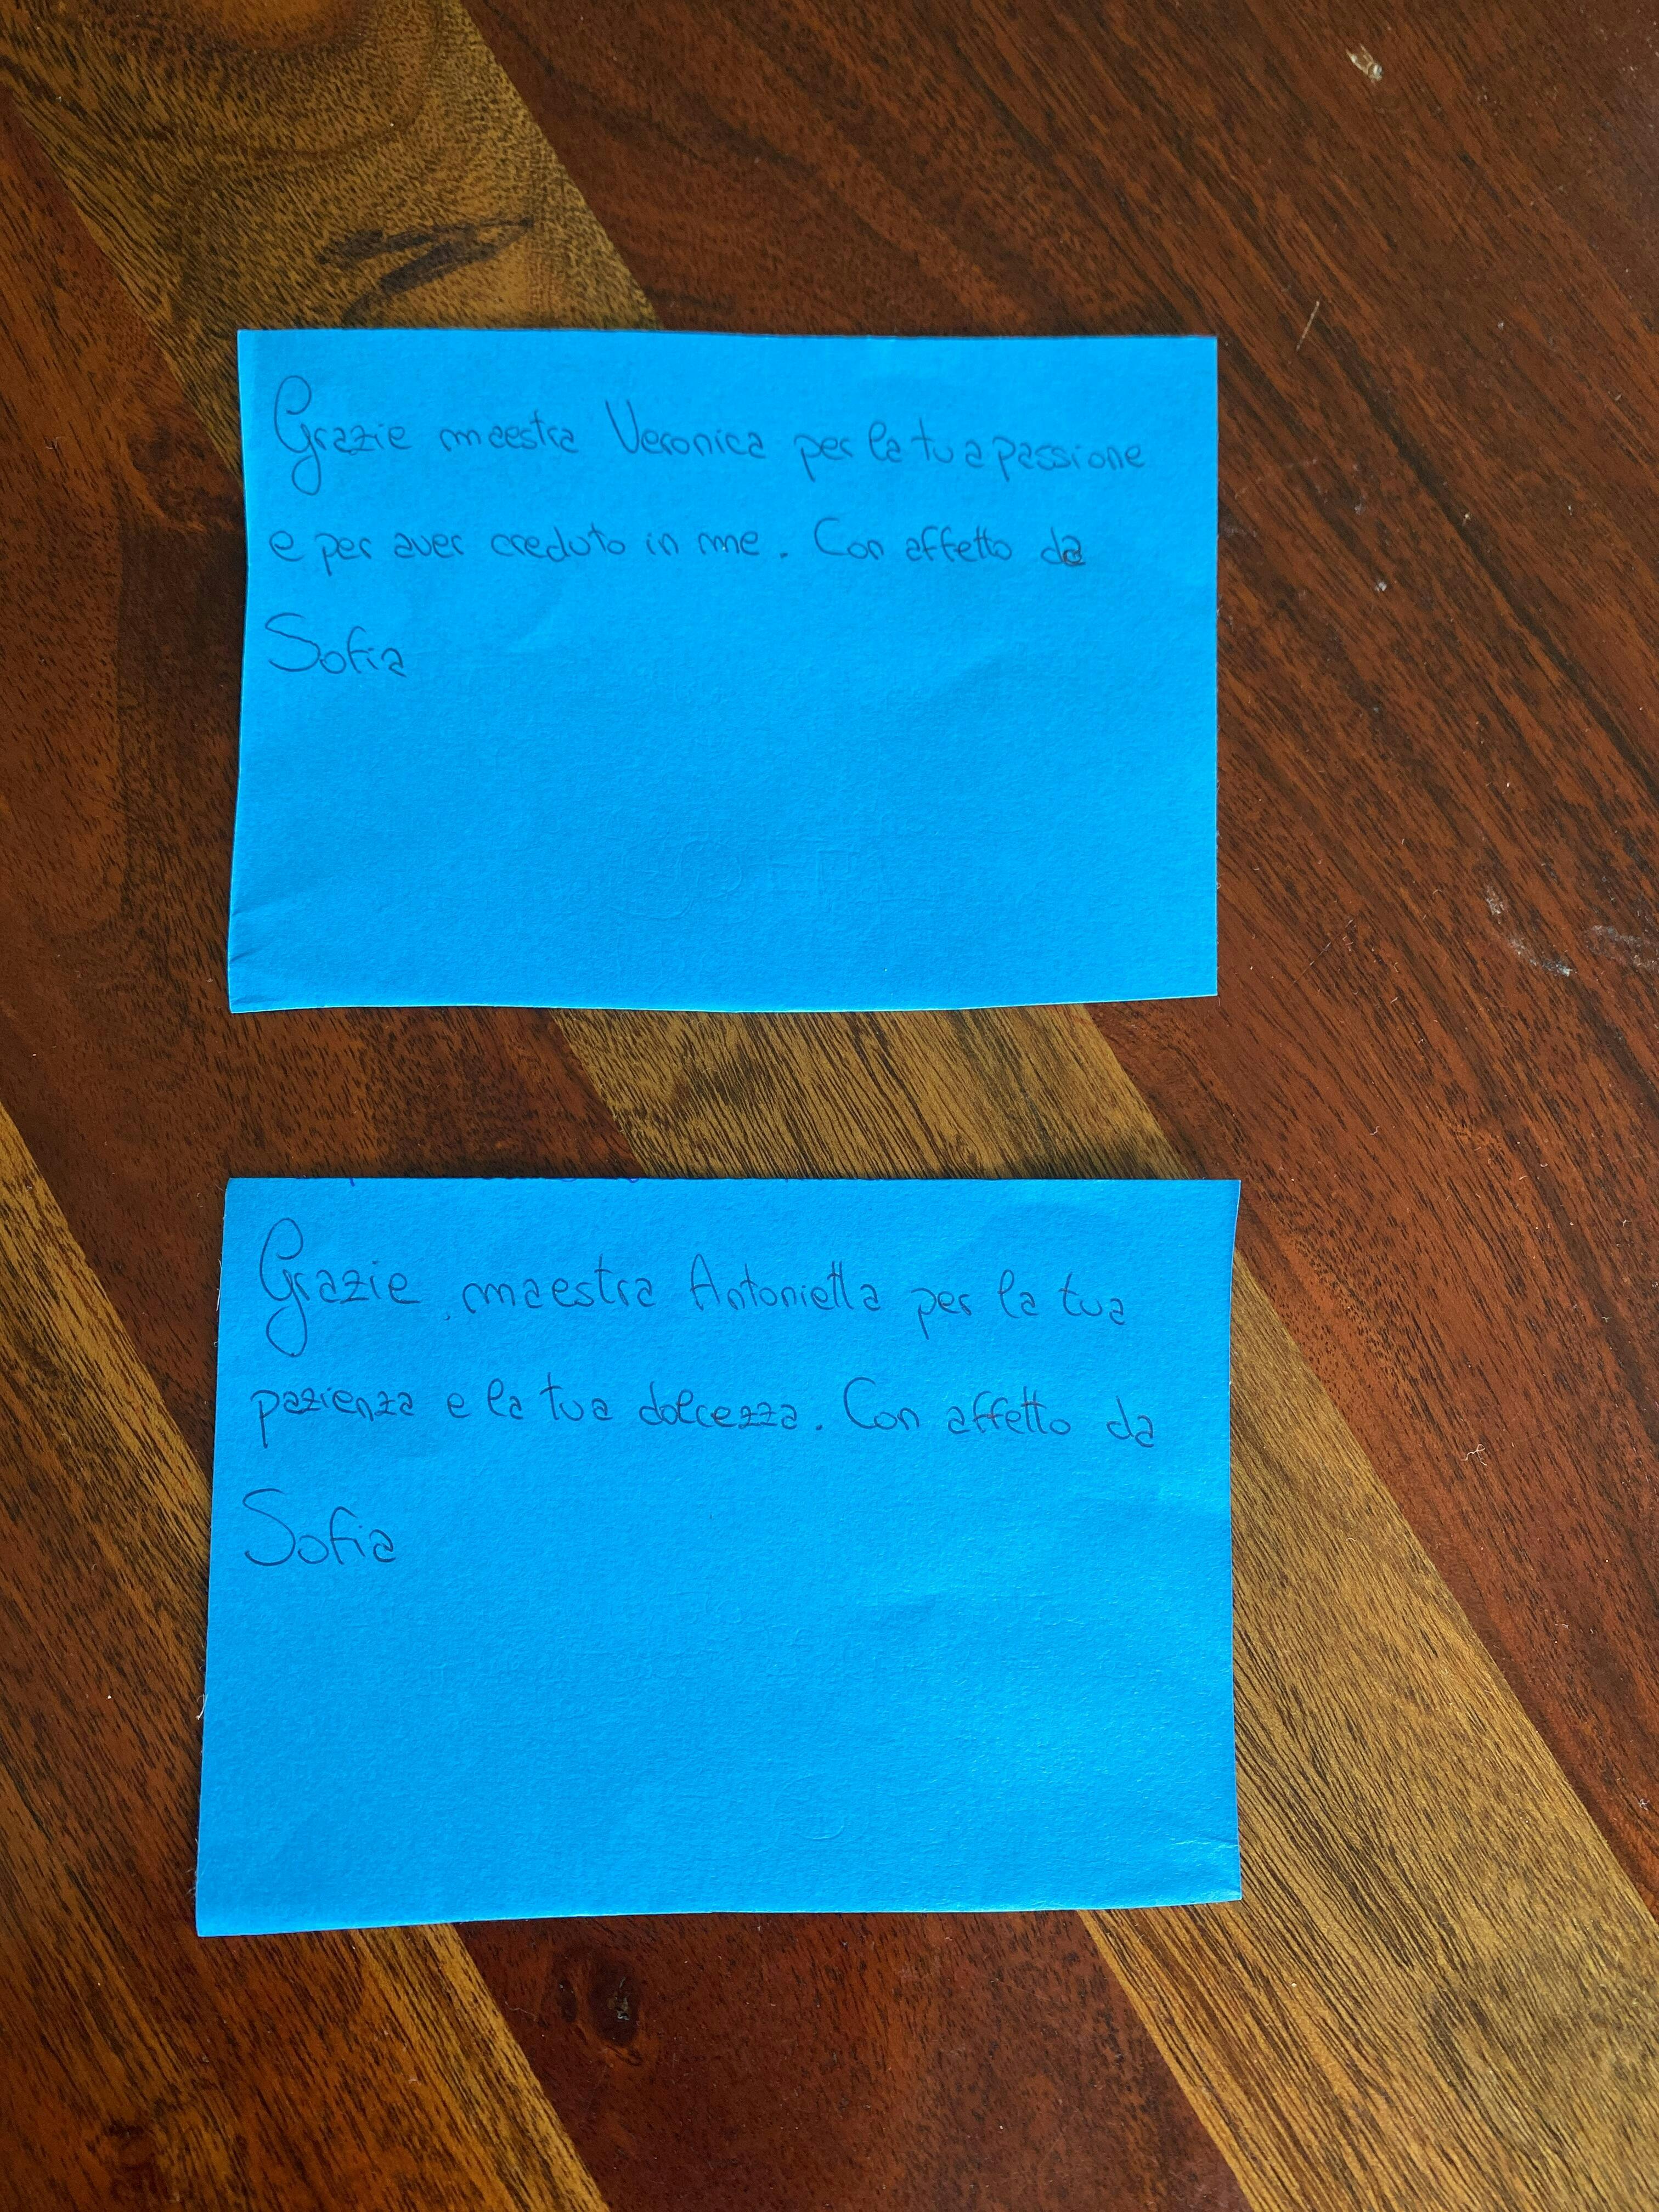 Grazie maestra Veronica per la tua passione
e per aver creduto in me. Con affetto da
Sofia
Grazie maestra Antonietta per la tua
pazienza e la tua dolcezza. Con affetto da
Sofia